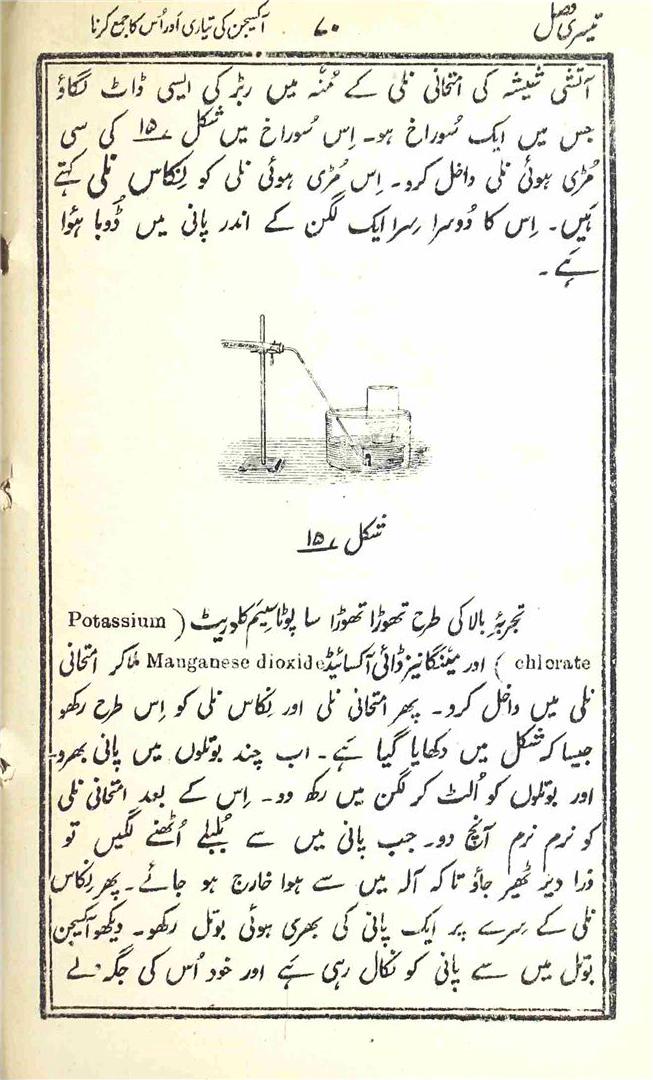 تیسری فصل ۷۰ آکسیجن کی تیاری اور اُس کا جمع کرنا
آتشی شیشہ کی امتحانی نلی کے مُنہ میں ربڑ کی ایسی ڈاٹ لگاؤ
جس میں ایک سُوراخ ہو۔ اِس سُوراخ میں شکل ۱۵ کی سی
مُڑی ہوئی نلی داخل کرو۔ اِس مُڑی ہوئی نلی کو نِکاس نلی کہتے
ہیں۔ اِس کا دُوسرا سِرا ایک لگن کے اندر پانی میں ڈُوبا ہُوا
ہے۔
شکل ۱۵
تجربۂ بالا کی طرح تھوڑا تھوڑا سا پوٹاسیئم کلوریٹ ( Potassium
chlorate ) اور مینگانیز ڈائی آکسائیڈ Manganese dioxide ملا کر امتحانی
نلی میں داخل کرو۔ پھر امتحانی نلی اور نِکاس نلی کو اِس طرح رکھو
جیسا کہ شکل میں دکھایا گیا ہے۔ اب چند بوتلوں میں پانی بھرو۔
اور بوتلوں کو اُلٹ کر لگن میں رکھ دو۔ اِس کے بعد امتحانی نلی
کو نرم نرم آنچ دو۔ جب پانی میں سے بُلبلے اُٹھنے لگیں تو
ذرا دیر ٹھیر جاؤ تاکہ آلہ میں سے ہوا خارج ہو جائے۔ پھر نِکاس
نلی کے سِرے پر ایک پانی کی بھری ہوئی بوتل رکھو۔ دیکھو آکسیجن
بوتل میں سے پانی کو نکال رہی ہے اور خود اُس کی جگہ لے